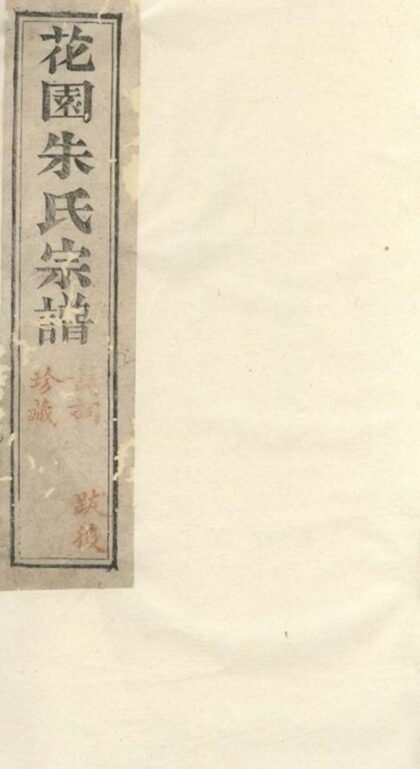 花園朱氏宗譜
祠
珍藏
跋